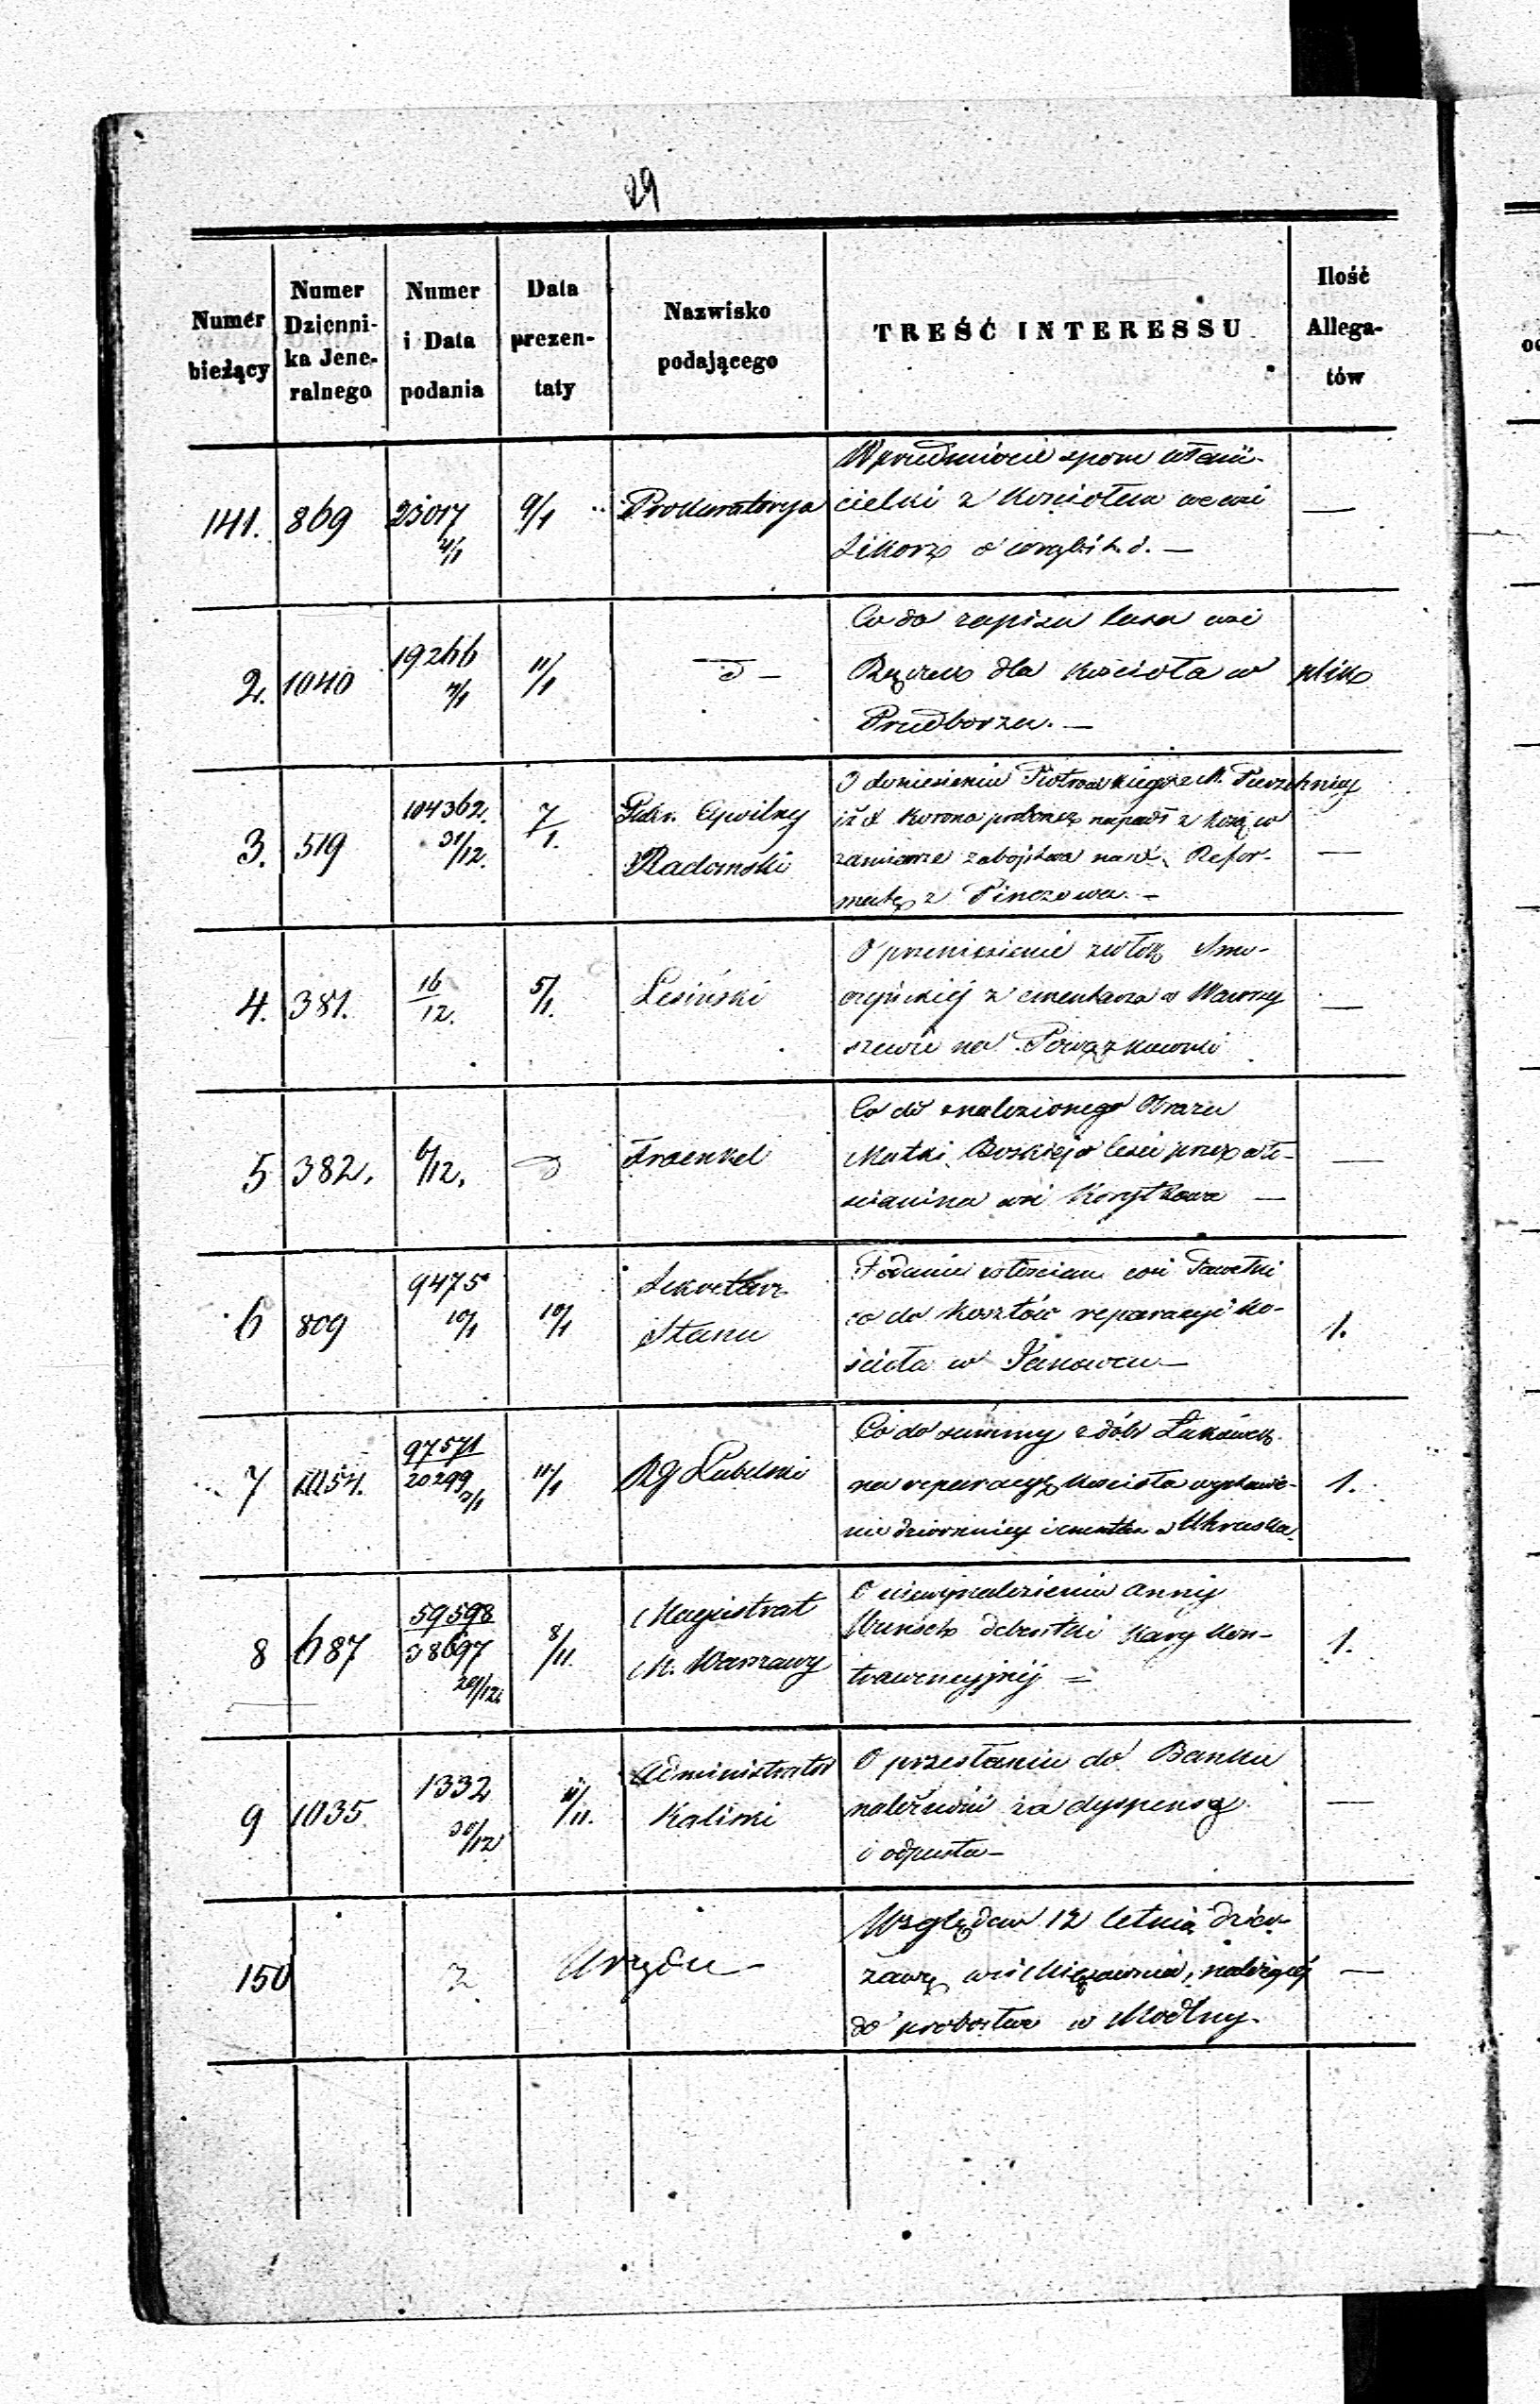 29
Numer bieżący
Numer Dzienni-ka Jene-ralnego
Numer i Data podania
Data prezen-taty
Nazwisko podającego
TREŚĆ INTERESSU
Ilość Allega-tów
141. 869 23017 4/1 9/1 Prokuratorya
W przedmiocie sporu właści-
cielki z Kościołem we wsi
Sikorz o
—
2. 1040 19266 7/1 11/1 d –
Co do zapisu lasu wsi
dla Kościoła w
Przedborzu. —
plik
3. 519 104362. 31/12. 7/1. Gub. Cywilny
Radomski
O doniesieniu Piotrowskiego z M. Pierzchnicy
iż X Korona proboszcz napadł z kosą w
zamiarze zabójstwa na X. Refor-
matę z Pinczowa. –
—
4. 381. 16/12. 5/1. Lesiński
O przeniesienie zwłok Smo-
czyńskiej z cmentarza w Wawrzy
szewie na Powązkowski
—
5 382. 6/12. d Fraenkel
Co do znalezionego Obrazu
Matki Boskiej w lesie przez wło-
scianina wsi Korytkowa —
—
6 809 9475 10/1 10/1 Sekretarz
Stanu
Podanie włoscian wsi Pawełki
co do kosztów reparacyi Ko-
ścioła w Janowcu —
1.
7 1054. 97571 20299 7/1 11/1 Rg Lubelski
Co do summy z dóbr Łukówek
na reparacyę Kościoła wystawie-
nie dzwonnicy i cmentarz w Uhruska.
1.
8 687 59598 38697 29/12. 8/11. Magistrat
M. Warszawy
O niewynalezieniu Anny
Wunsch debentki Kary Kon-
trawencyjnej –
1.
9 1035. 1332 30/12 11/11. Administrator
Kaliski
O przesłaniu do Banku
należności za dyspensę
i odpusta –
—
150 z Urzędu –
Względem 12 letniej dzier-
żawy wsi należącej
do probostwa w Modlny.
—